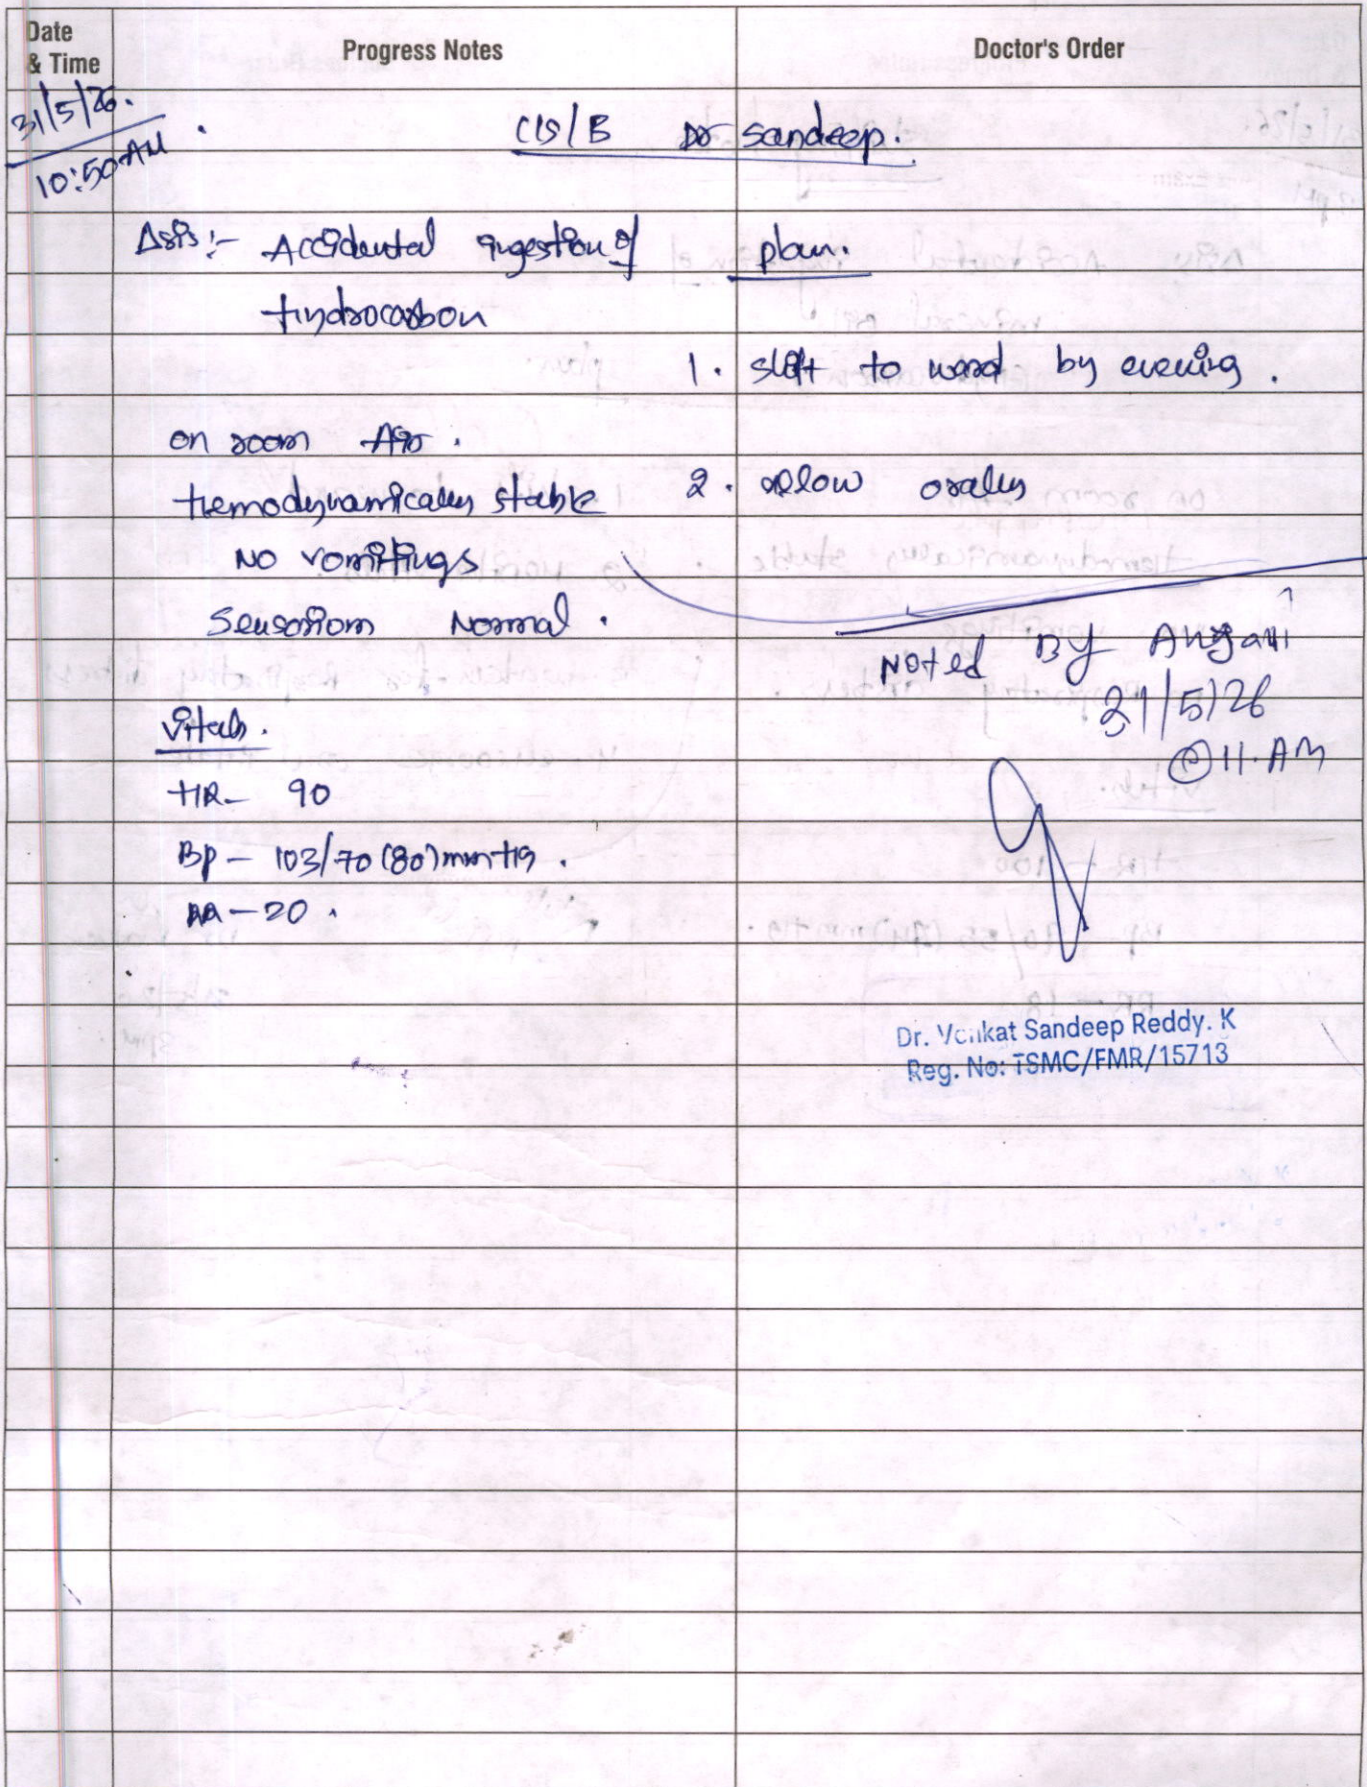 Date & Time
Progress Notes
Doctor's Order
31/5/26.
10:50 AM
C/S/B Dr Sandeep.
Δsis:- Accidental ingestion of
Hydrocarbon
on room Air.
Hemodynamically stable
NO vomitings
Sensorium Normal.
Vitals.
HR- 90
BP - 103/70 (80) mmHg.
RR - 20.
plan.
1. shift to ward by evening.
2. allow orally
Noted By Anjani
31/5/26
@ 11.AM
Dr. Venkat Sandeep Reddy. K
Reg. No: TSMC/FMR/15713